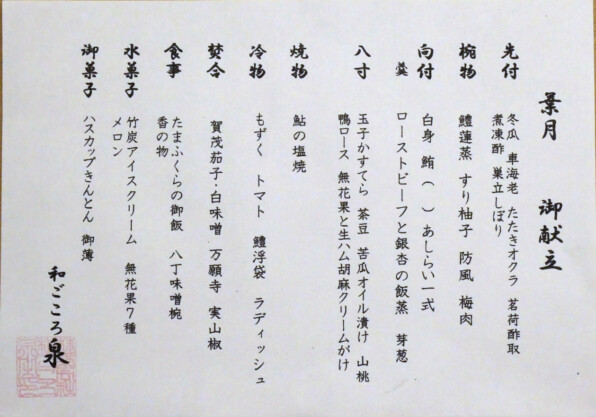 葉月 御献立
先付 冬瓜 車海老 たたきオクラ 茗荷酢取
煮凍酢 巣立しぼり
椀物 鱧蓮蒸 すり柚子 防風 梅肉
向付 白身 鮪( )あしらい一式
羹 ローストビーフと銀杏の飯蒸 芽葱
八寸 玉子かすてら 茶豆 苦瓜オイル漬け 山桃
鴨ロース 無花果と生ハム胡麻クリームがけ
焼物 鮎の塩焼
冷物 もずく トマト 鱧浮袋 ラディッシュ
焚合 賀茂茄子・白味噌 万願寺 実山椒
食事 たまふくらの御飯 八丁味噌椀
香の物
水菓子 竹炭アイスクリーム 無花果7種
メロン
御菓子 ハスカップきんとん 御薄
和ごころ泉